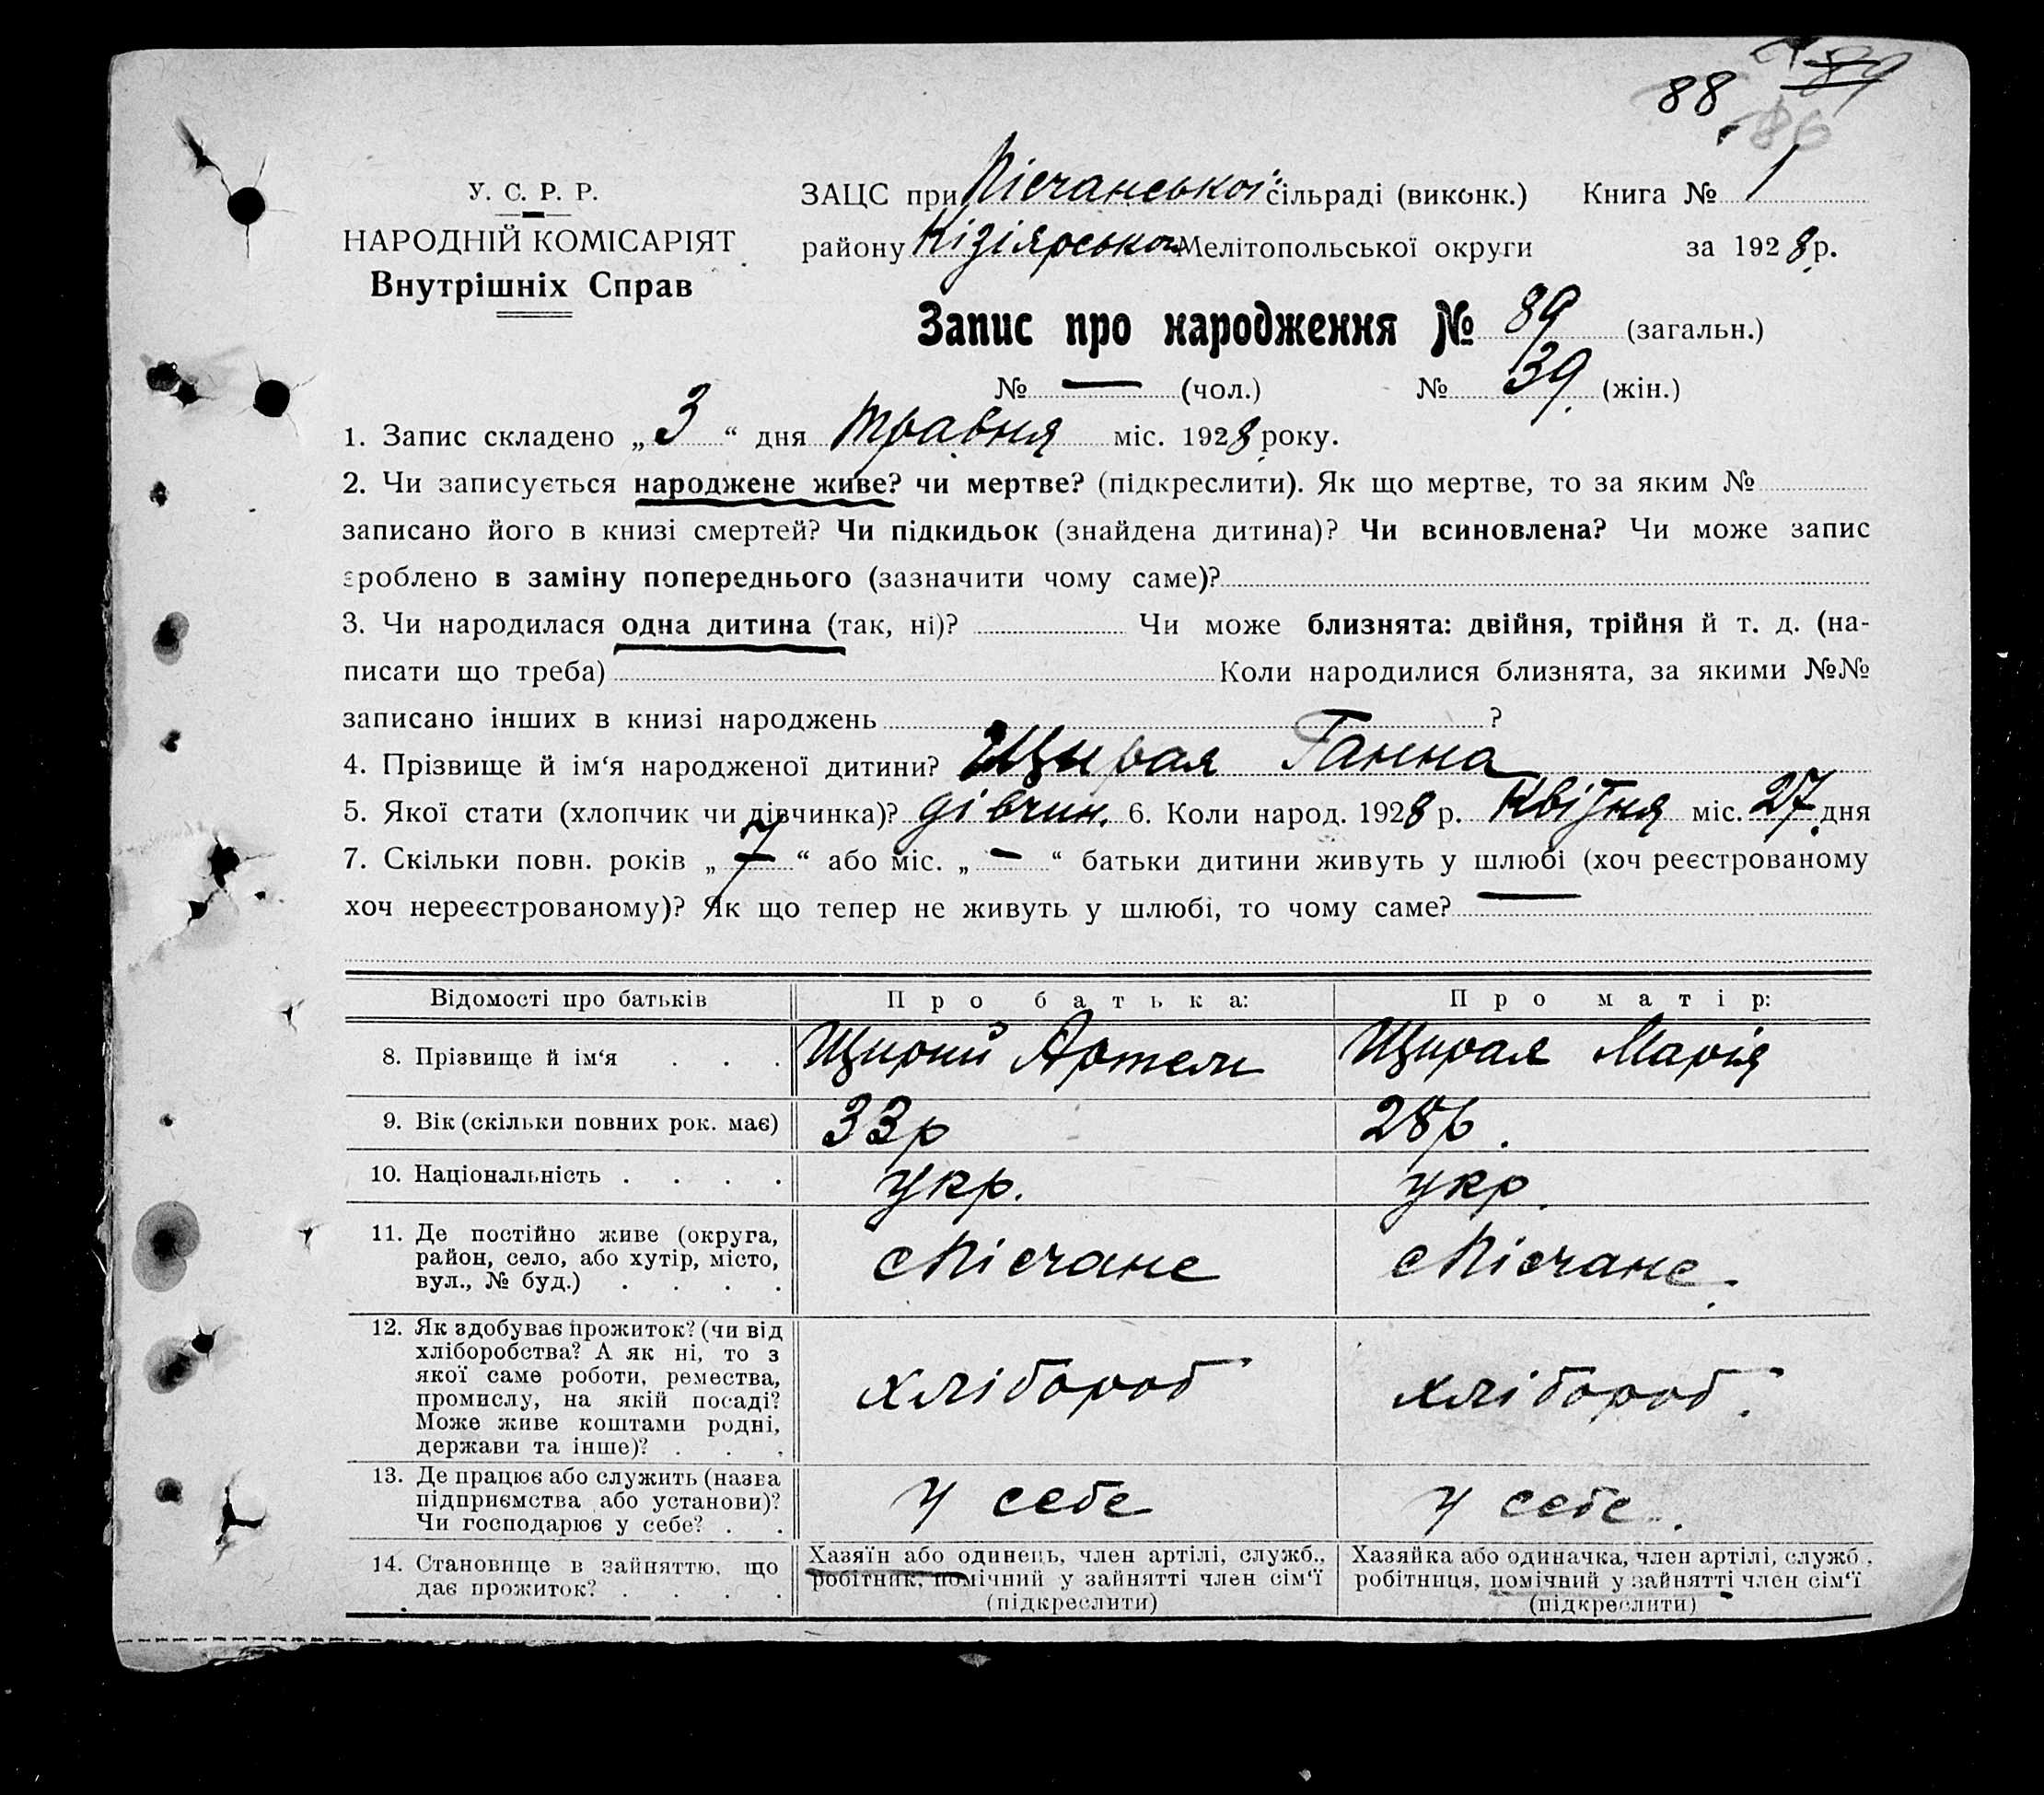 88 89
86
У. С. Р. Р.
НАРОДНІЙ КОМІСАРІЯТ
Внутрішніх Справ
ЗАЦС при Пісчанської сільраді (виконк.) Книга № 1
району Кізіярської Мелітопольської округи за 1928 р.
Запис про народження № 89 (загальн.)
№ — (чол.) № 39. (жін.)
1. Запис складено „ 3 “ дня травня міс. 1928 року.
2. Чи записується народжене живе? чи мертве? (підкреслити). Як що мертве, то за яким №
записано його в книзі смертей? Чи підкидьок (знайдена дитина)? Чи всиновлена? Чи може запис
зроблено в заміну попереднього (зазначити чому саме)?
3. Чи народилася одна дитина (так, ні)? Чи може близнята: двійня, трійня й т. д. (на-
писати що треба) Коли народилися близнята, за якими №№
записано інших в книзі народжень ?
4. Прізвище й ім‘я народженої дитини? Щирая Ганна
5. Якої стати (хлопчик чи дівчинка)? дівчин. 6. Коли народ. 1928 р. Квітня міс. 27 дня
7. Скільки повн. років „ 7 “ або міс. „ — “ батьки дитини живуть у шлюбі (хоч реєстрованому
хоч нереєстрованому)? Як що тепер не живуть у шлюбі, то чому саме?
Відомості про батьків Про батька: Про матір:
8. Прізвище й ім‘я . . . Щирий Артем Щирая Марія
9. Вік (скільки повних рок. має) 33р 28р.
10. Національність . . . . укр. укр.
11. Де постійно живе (округа,
район, село, або хутір, місто,
вул., № буд.) . . . . с Пісчане с Пісчане.
12. Як здобуває прожиток? (чи від
хліборобства? А як ні, то з
якої саме роботи, ремества,
промислу, на якій посаді?
Може живе коштами родні,
держави та інше)? . . . хлібороб хлібороб.
13. Де працює або служить (назва
підприємства або установи)?
Чи господарює у себе? . . у себе у себе.
14. Становище в зайняттю, що
дає прожиток? . . . .
Хазяїн або одинець, член артілі, служб.,
робітник, помічний у зайнятті член сім‘ї
(підкреслити)
Хазяйка або одиначка, член артілі, служб.,
робітниця, помічний у зайнятті член сім‘ї
(підкреслити)